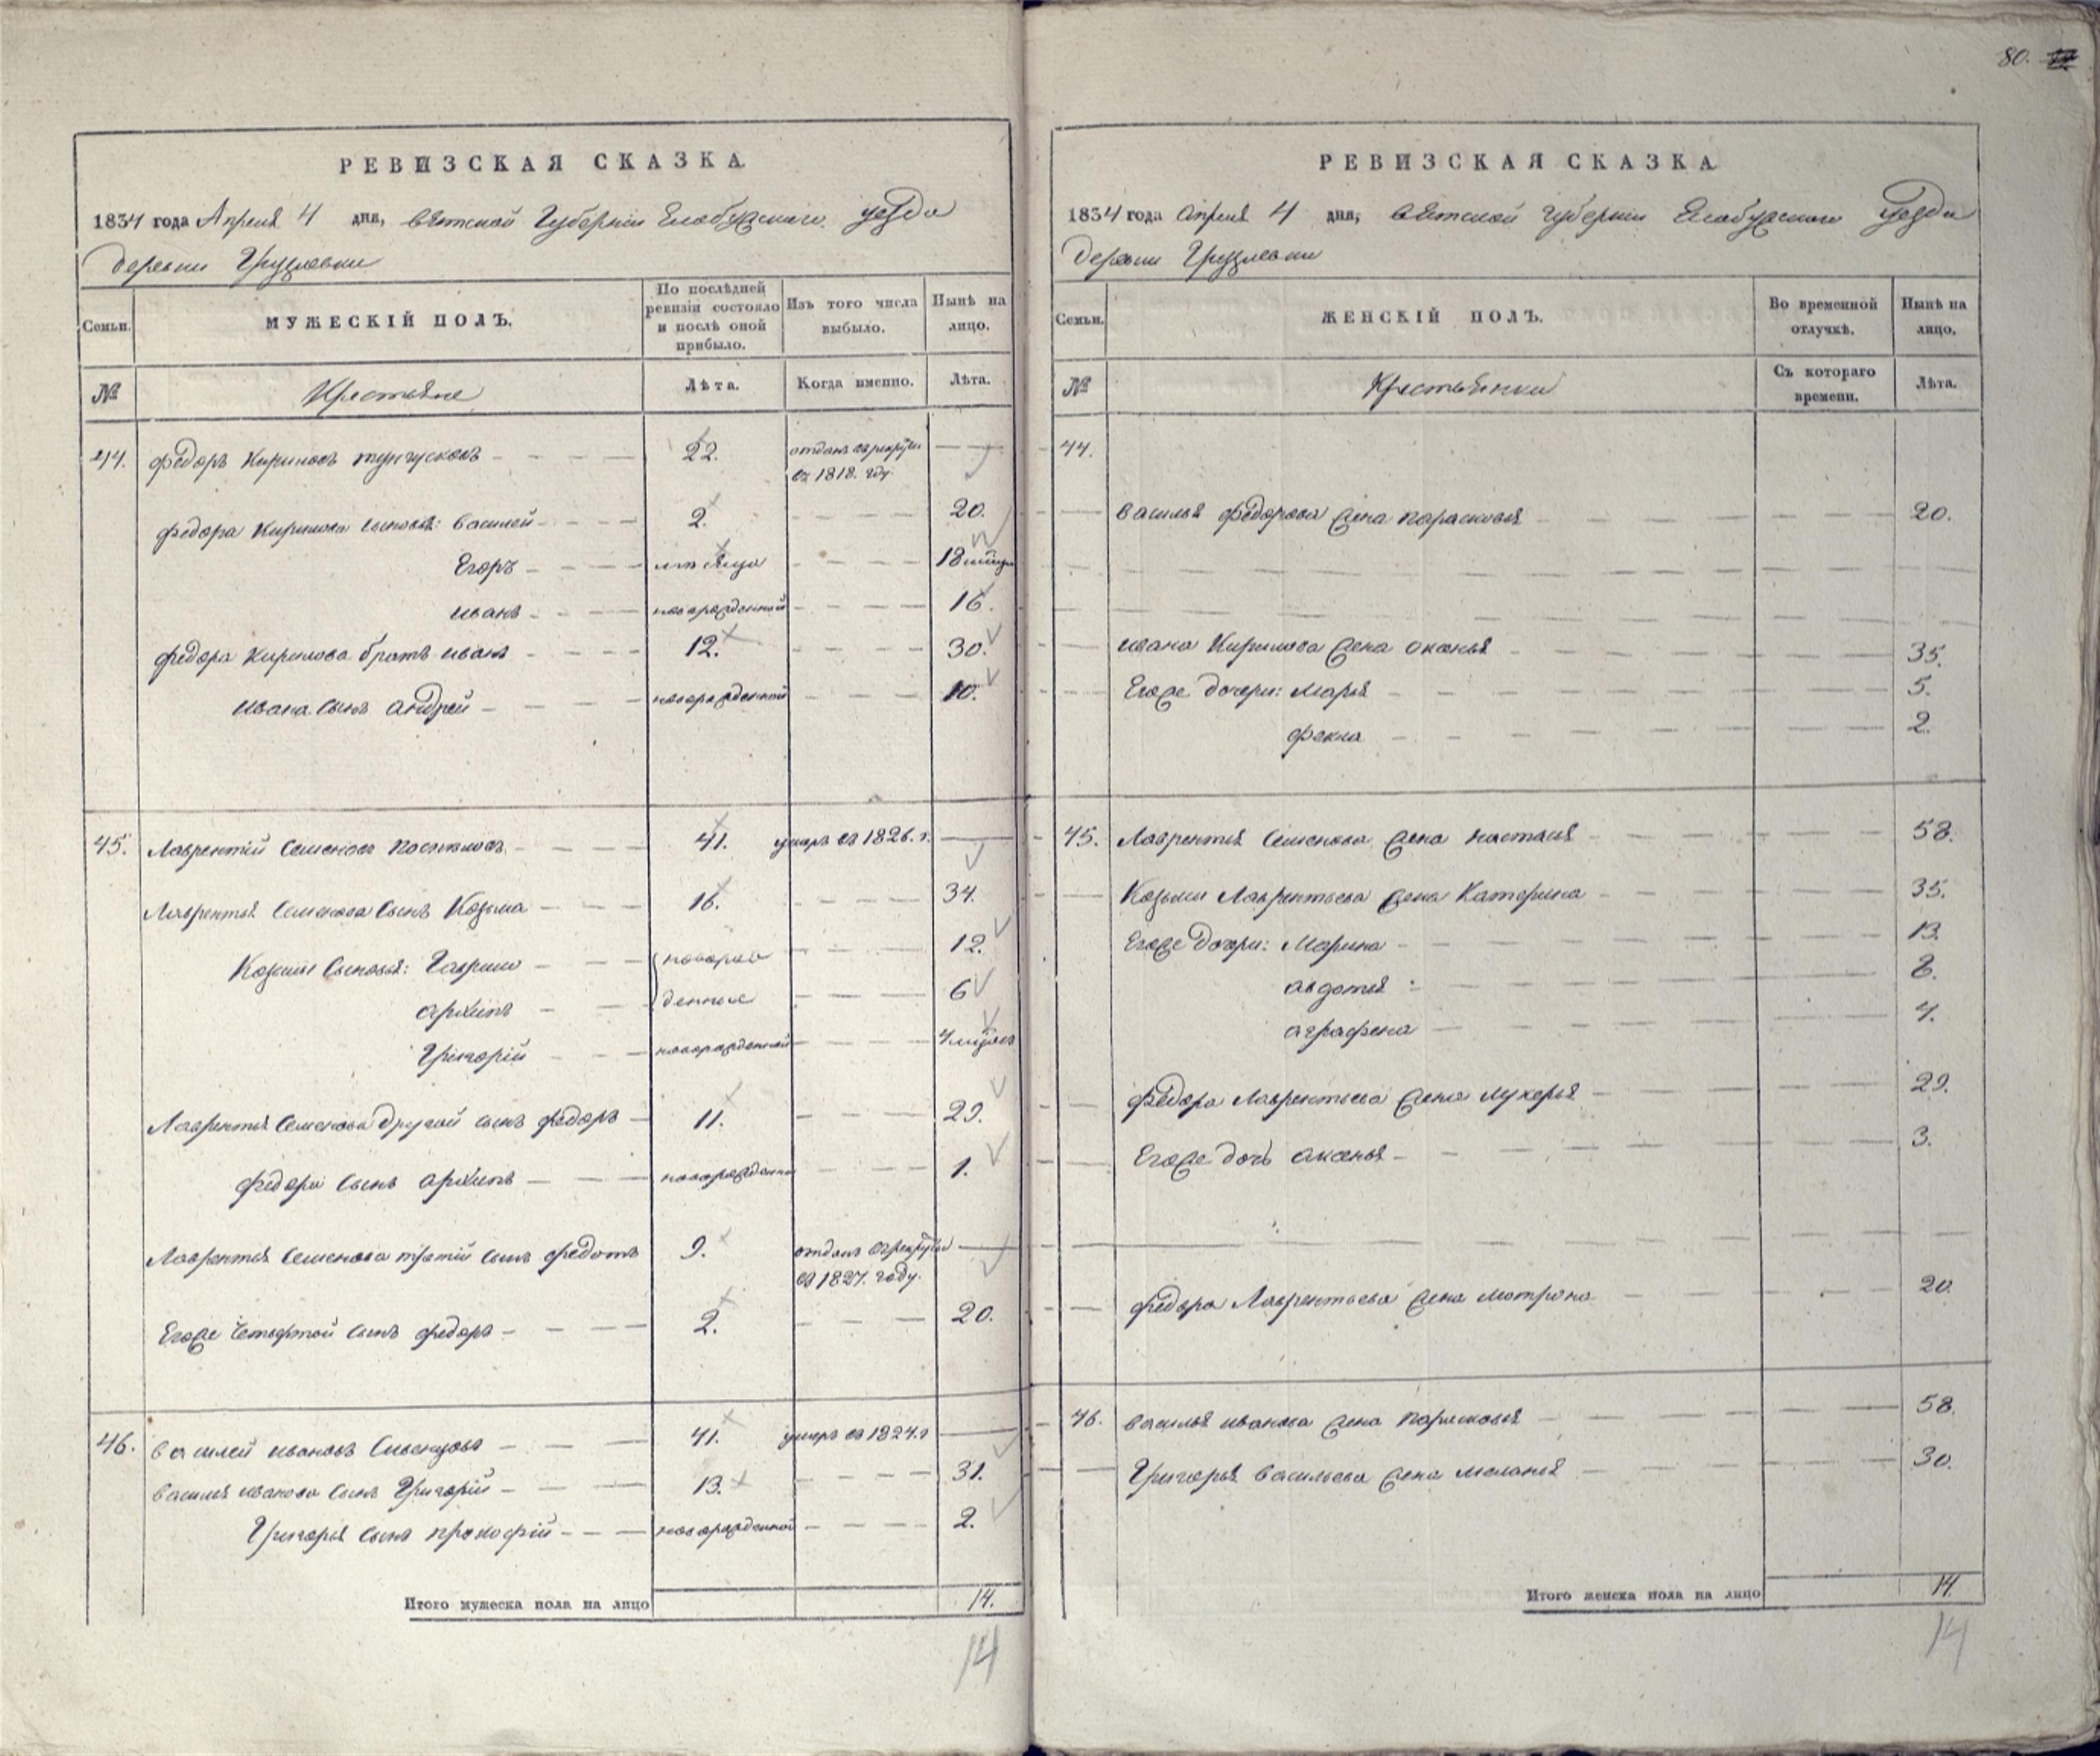 80.
РЕВИЗСКАЯ СКАЗКА.
1834 года Апреля 4 дня, Вятской Губернии Елабужского уезда
деревни
Семьи.
МУЖЕСКІЙ ПОЛЪ.
По послѣдней ревизіи состояло и послѣ оной прибыло.
Изъ того числа выбыло.
Нынѣ на лицо.
№
Крестьяне
Лѣта.
Когда именно.
Лѣта.
44. Федоръ Кириловъ 22. отданъ в рекруты
въ 1818. году
Федора Кирилова сыновья: Василей 2. 20.
Егоръ 18
Иванъ новорожденной 16.
Федора Кирилова братъ Иванъ 12. 30.
Ивана сынъ Андрей новорожденной 10.
45. Лаврентий Семеновъ 41. умеръ въ 1826. г.
Лаврентья Семенова сынъ Козьма 16. 34.
Козьмы сыновья: Гаврило новорож 12.
Архипъ денные 6
Григорій новорожденной 4
Лаврентья Семенова другой сынъ Федоръ 11. 29.
Федора сынъ Архипъ новорожденной 1.
Лаврентья Семенова третий сынъ Федотъ 9. отданъ в рекруты
въ 1827. году.
Егоже четвертой сынъ Федоръ 2. 20.
46. Василей Ивановъ 41. умеръ въ 1824. г
Василья Иванова сынъ Григорій 13. 31.
Григорья сынъ Прокофій новорожденной 2.
Итого мужеска пола на лицо 14.
14
РЕВИЗСКАЯ СКАЗКА.
1834 года Апреля 4 дня, Вятской Губернии Елабужского уезда
деревни
Семьи.
ЖЕНСКІЙ ПОЛЪ.
Во временной отлучкѣ.
Нынѣ на лицо.
№
Крестьянки
Съ котораго времени.
Лѣта.
44.
Василья Федорова жена Парасковья 20.
Ивана Кирилова жена Оксенья 35.
Егоже дочери: Марья 5.
Фекла 2.
45. Лаврентья Семенова жена Настасья 58.
Козьмы Лаврентьева жена Катерина 35.
Егоже дочери: Марина 13.
Авдотья 8.
Аграфена 4.
Федора Лаврентьева жена Лукерья 29.
Егоже дочь Аксенья 3.
Федора Лаврентьева жена Матрона 20.
46. Василья Иванова жена Парасковья 58.
Григорья Васильева жена Меланья 30.
Итого женска пола на лицо 14.
14